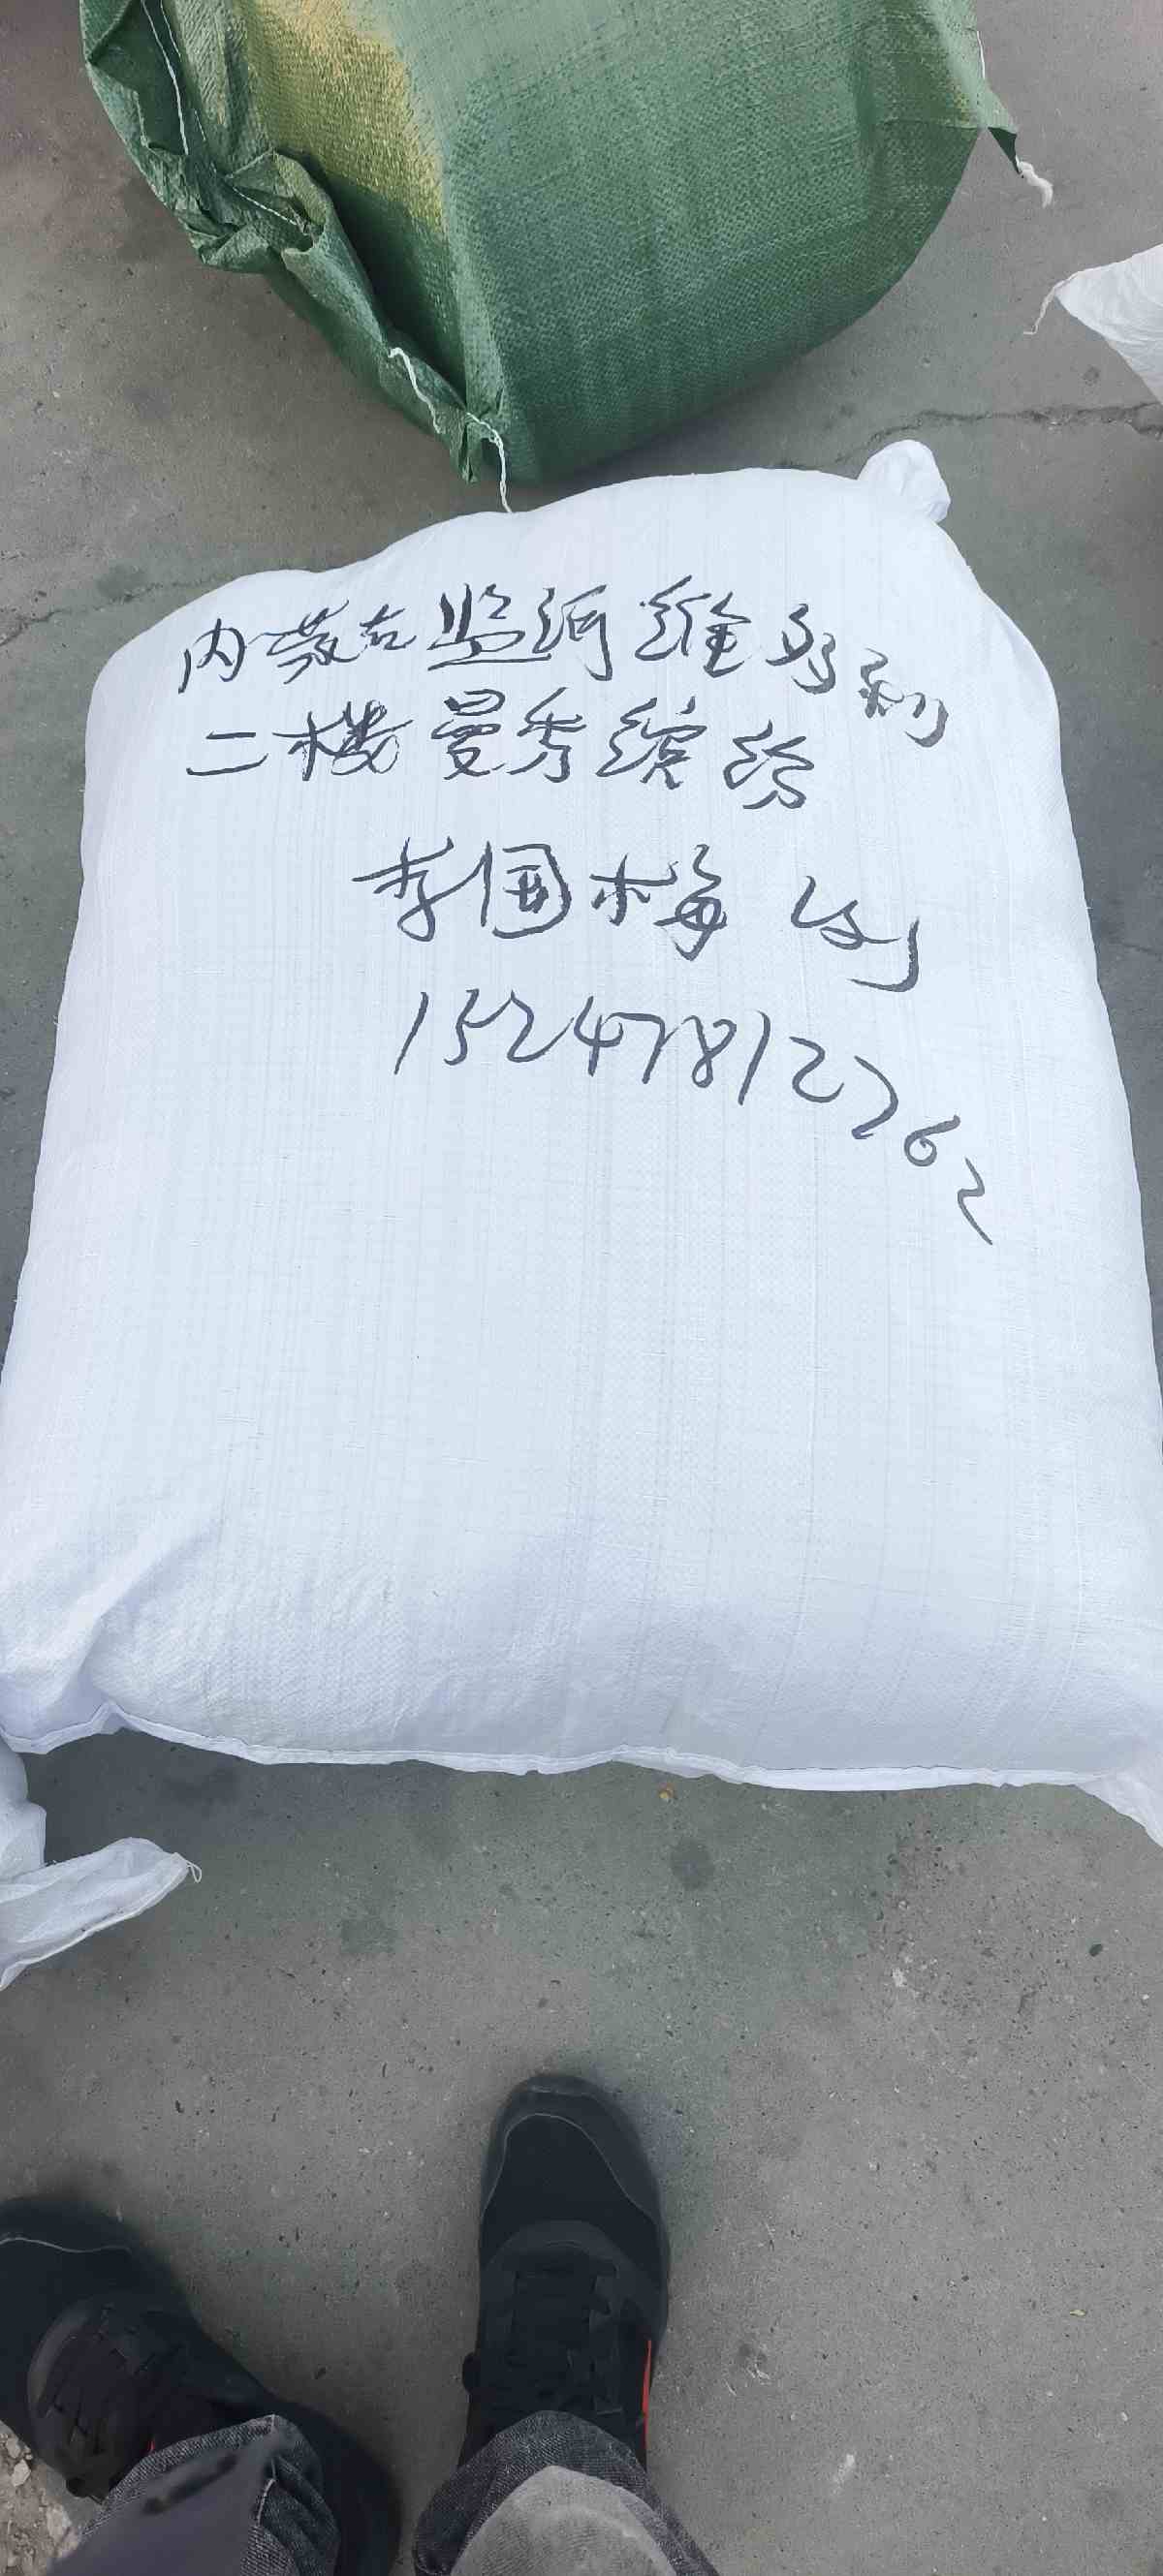 内蒙古临河维多利
二楼曼秀缤纷
李国梅 收
15247812762